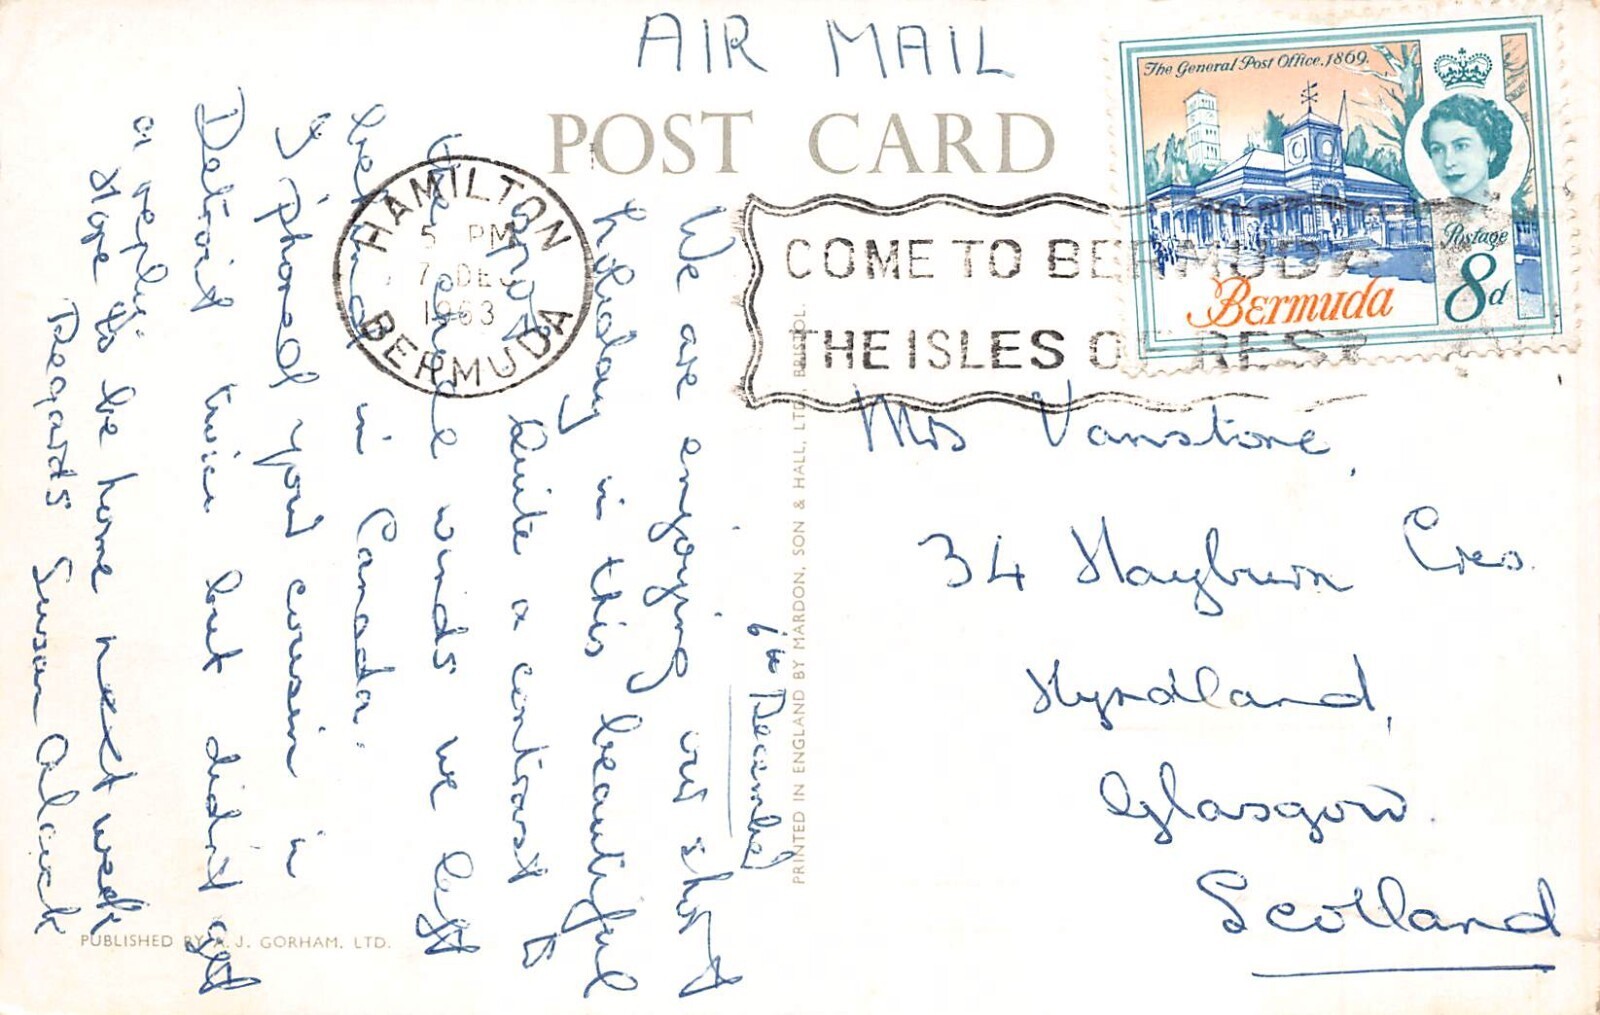 AIR MAIL
POST CARD
The General Post Office, 1869.
Postage
8d
Bermuda
HAMILTON
5 PM
7 DEC
1963
BERMUDA
COME TO BERMUDA
THE ISLES OF REST
6th December
We are enjoying our short
holiday in this beautiful
spot. Quite a contrast to
the cold winds we left
behind in Canada.
I 'phoned your cousin in
Detroit twice but didn't get
a reply.
Hope to be home next week
Regards Susan
Mrs Vanstone,
34 Hayburn Cres.
Hyndland,
Glasgow.
Scotland
PRINTED IN ENGLAND BY MARDON, SON & HALL, LTD., BRISTOL.
PUBLISHED BY A. J. GORHAM, LTD.